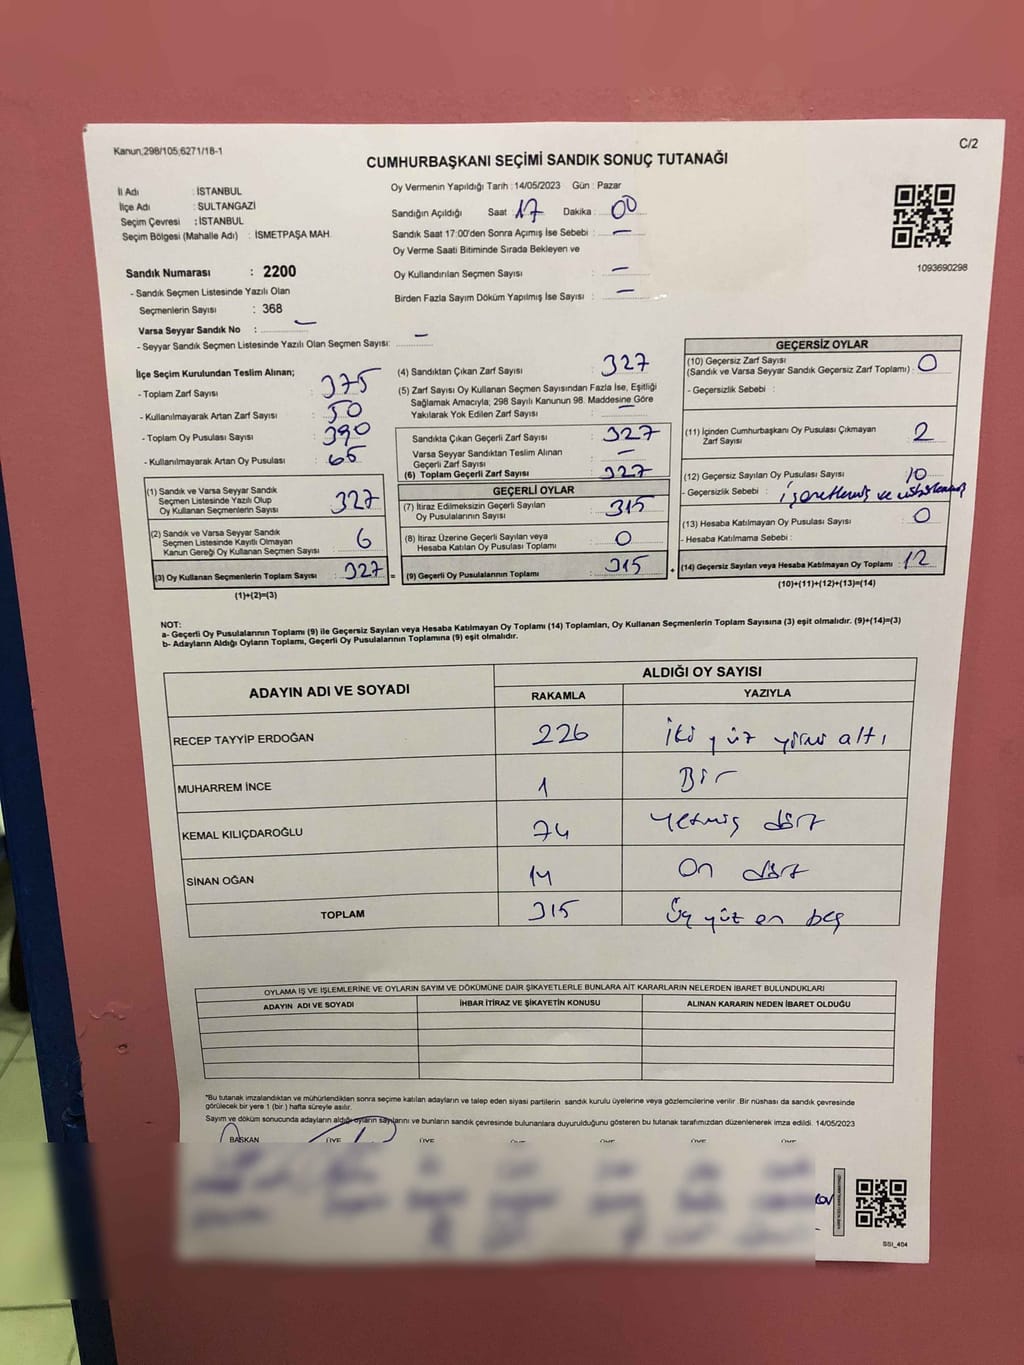 Kanun;298/105;6271/18-1
C/2
CUMHURBAŞKANI SEÇİMİ SANDIK SONUÇ TUTANAĞI
İl Adı : İSTANBUL
İlçe Adı : SULTANGAZİ
Seçim Çevresi : İSTANBUL
Seçim Bölgesi (Mahalle Adı) : İSMETPAŞA MAH.
Oy Vermenin Yapıldığı Tarih : 14/05/2023 Gün : Pazar
Sandığın Açıldığı Saat 17 Dakika : 00
Sandık Saat 17:00'den Sonra Açımış İse Sebebi : —
Oy Verme Saati Bitiminde Sırada Bekleyen ve
Oy Kullandırılan Seçmen Sayısı : —
Birden Fazla Sayım Döküm Yapılmış İse Sayısı : —
1093690298
Sandık Numarası : 2200
- Sandık Seçmen Listesinde Yazılı Olan
Seçmenlerin Sayısı : 368
Varsa Seyyar Sandık No : —
- Seyyar Sandık Seçmen Listesinde Yazılı Olan Seçmen Sayısı: —
İlçe Seçim Kurulundan Teslim Alınan;
- Toplam Zarf Sayısı : 375
- Kullanılmayarak Artan Zarf Sayısı : 50
- Toplam Oy Pusulası Sayısı : 390
- Kullanılmayarak Artan Oy Pusulası : 65
(1) Sandık ve Varsa Seyyar Sandık
Seçmen Listesinde Yazılı Olup
Oy Kullanan Seçmenlerin Sayısı : 327
(2) Sandık ve Varsa Seyyar Sandık
Seçmen Listesinde Kayıtlı Olmayan
Kanun Gereği Oy Kullanan Seçmen Sayısı : 6
(3) Oy Kullanan Seçmenlerin Toplam Sayısı : 327 =
(1)+(2)=(3)
(4) Sandıktan Çıkan Zarf Sayısı : 327
(5) Zarf Sayısı Oy Kullanan Seçmen Sayısından Fazla İse, Eşitliği
Sağlamak Amacıyla; 298 Sayılı Kanunun 98. Maddesine Göre
Yakılarak Yok Edilen Zarf Sayısı : —
Sandıkta Çıkan Geçerli Zarf Sayısı : 327
Varsa Seyyar Sandıktan Teslim Alınan
Geçerli Zarf Sayısı : —
(6) Toplam Geçerli Zarf Sayısı : 327
GEÇERLİ OYLAR
(7) İtiraz Edilmeksizin Geçerli Sayılan
Oy Pusulalarının Sayısı : 315
(8) İtiraz Üzerine Geçerli Sayılan veya
Hesaba Katılan Oy Pusulası Toplamı : 0
(9) Geçerli Oy Pusulalarının Toplamı : 315 +
GEÇERSİZ OYLAR
(10) Geçersiz Zarf Sayısı
(Sandık ve Varsa Seyyar Sandık Geçersiz Zarf Toplamı) : 0
- Geçersizlik Sebebi :
(11) İçinden Cumhurbaşkanı Oy Pusulası Çıkmayan
Zarf Sayısı : 2
(12) Geçersiz Sayılan Oy Pusulası Sayısı : 10
- Geçersizlik Sebebi : işaretlemiş ve
(13) Hesaba Katılmayan Oy Pusulası Sayısı : 0
- Hesaba Katılmama Sebebi :
(14) Geçersiz Sayılan veya Hesaba Katılmayan Oy Toplamı : 12
(10)+(11)+(12)+(13)=(14)
NOT:
a- Geçerli Oy Pusulalarının Toplamı (9) ile Geçersiz Sayılan veya Hesaba Katılmayan Oy Toplamı (14) Toplamları, Oy Kullanan Seçmenlerin Toplam Sayısına (3) eşit olmalıdır. (9)+(14)=(3)
b- Adayların Aldığı Oyların Toplamı, Geçerli Oy Pusulalarının Toplamına (9) eşit olmalıdır.
ADAYIN ADI VE SOYADI
ALDIĞI OY SAYISI
RAKAMLA YAZIYLA
RECEP TAYYİP ERDOĞAN 226 İki yüz yirmi altı
MUHARREM İNCE 1 Bir
KEMAL KILIÇDAROĞLU 74 Yetmiş dört
SİNAN OĞAN 14 On dört
TOPLAM 315 Üç yüz on beş
OYLAMA İŞ VE İŞLEMLERİNE VE OYLARIN SAYIM VE DÖKÜMÜNE DAİR ŞİKAYETLERLE BUNLARA AİT KARARLARIN NELERDEN İBARET BULUNDUKLARI
ADAYIN ADI VE SOYADI İHBAR İTİRAZ VE ŞİKAYETİN KONUSU ALINAN KARARIN NEDEN İBARET OLDUĞU
*Bu tutanak imzalandıktan ve mühürlendikten sonra seçime katılan adayların ve talep eden siyasi partilerin sandık kurulu üyelerine veya gözlemcilerine verilir. Bir nüshası da sandık çevresinde
görülecek bir yere 1 (bir ) hafta süreyle asılır.
Sayım ve döküm sonucunda adayların aldığı oyların sayılarını ve bunların sandık çevresinde bulunanlara duyurulduğunu gösteren bu tutanak tarafımızdan düzenlenerek imza edildi. 14/05/2023
BAŞKAN ÜYE ÜYE ÜYE ÜYE ÜYE ÜYE
SSI_404